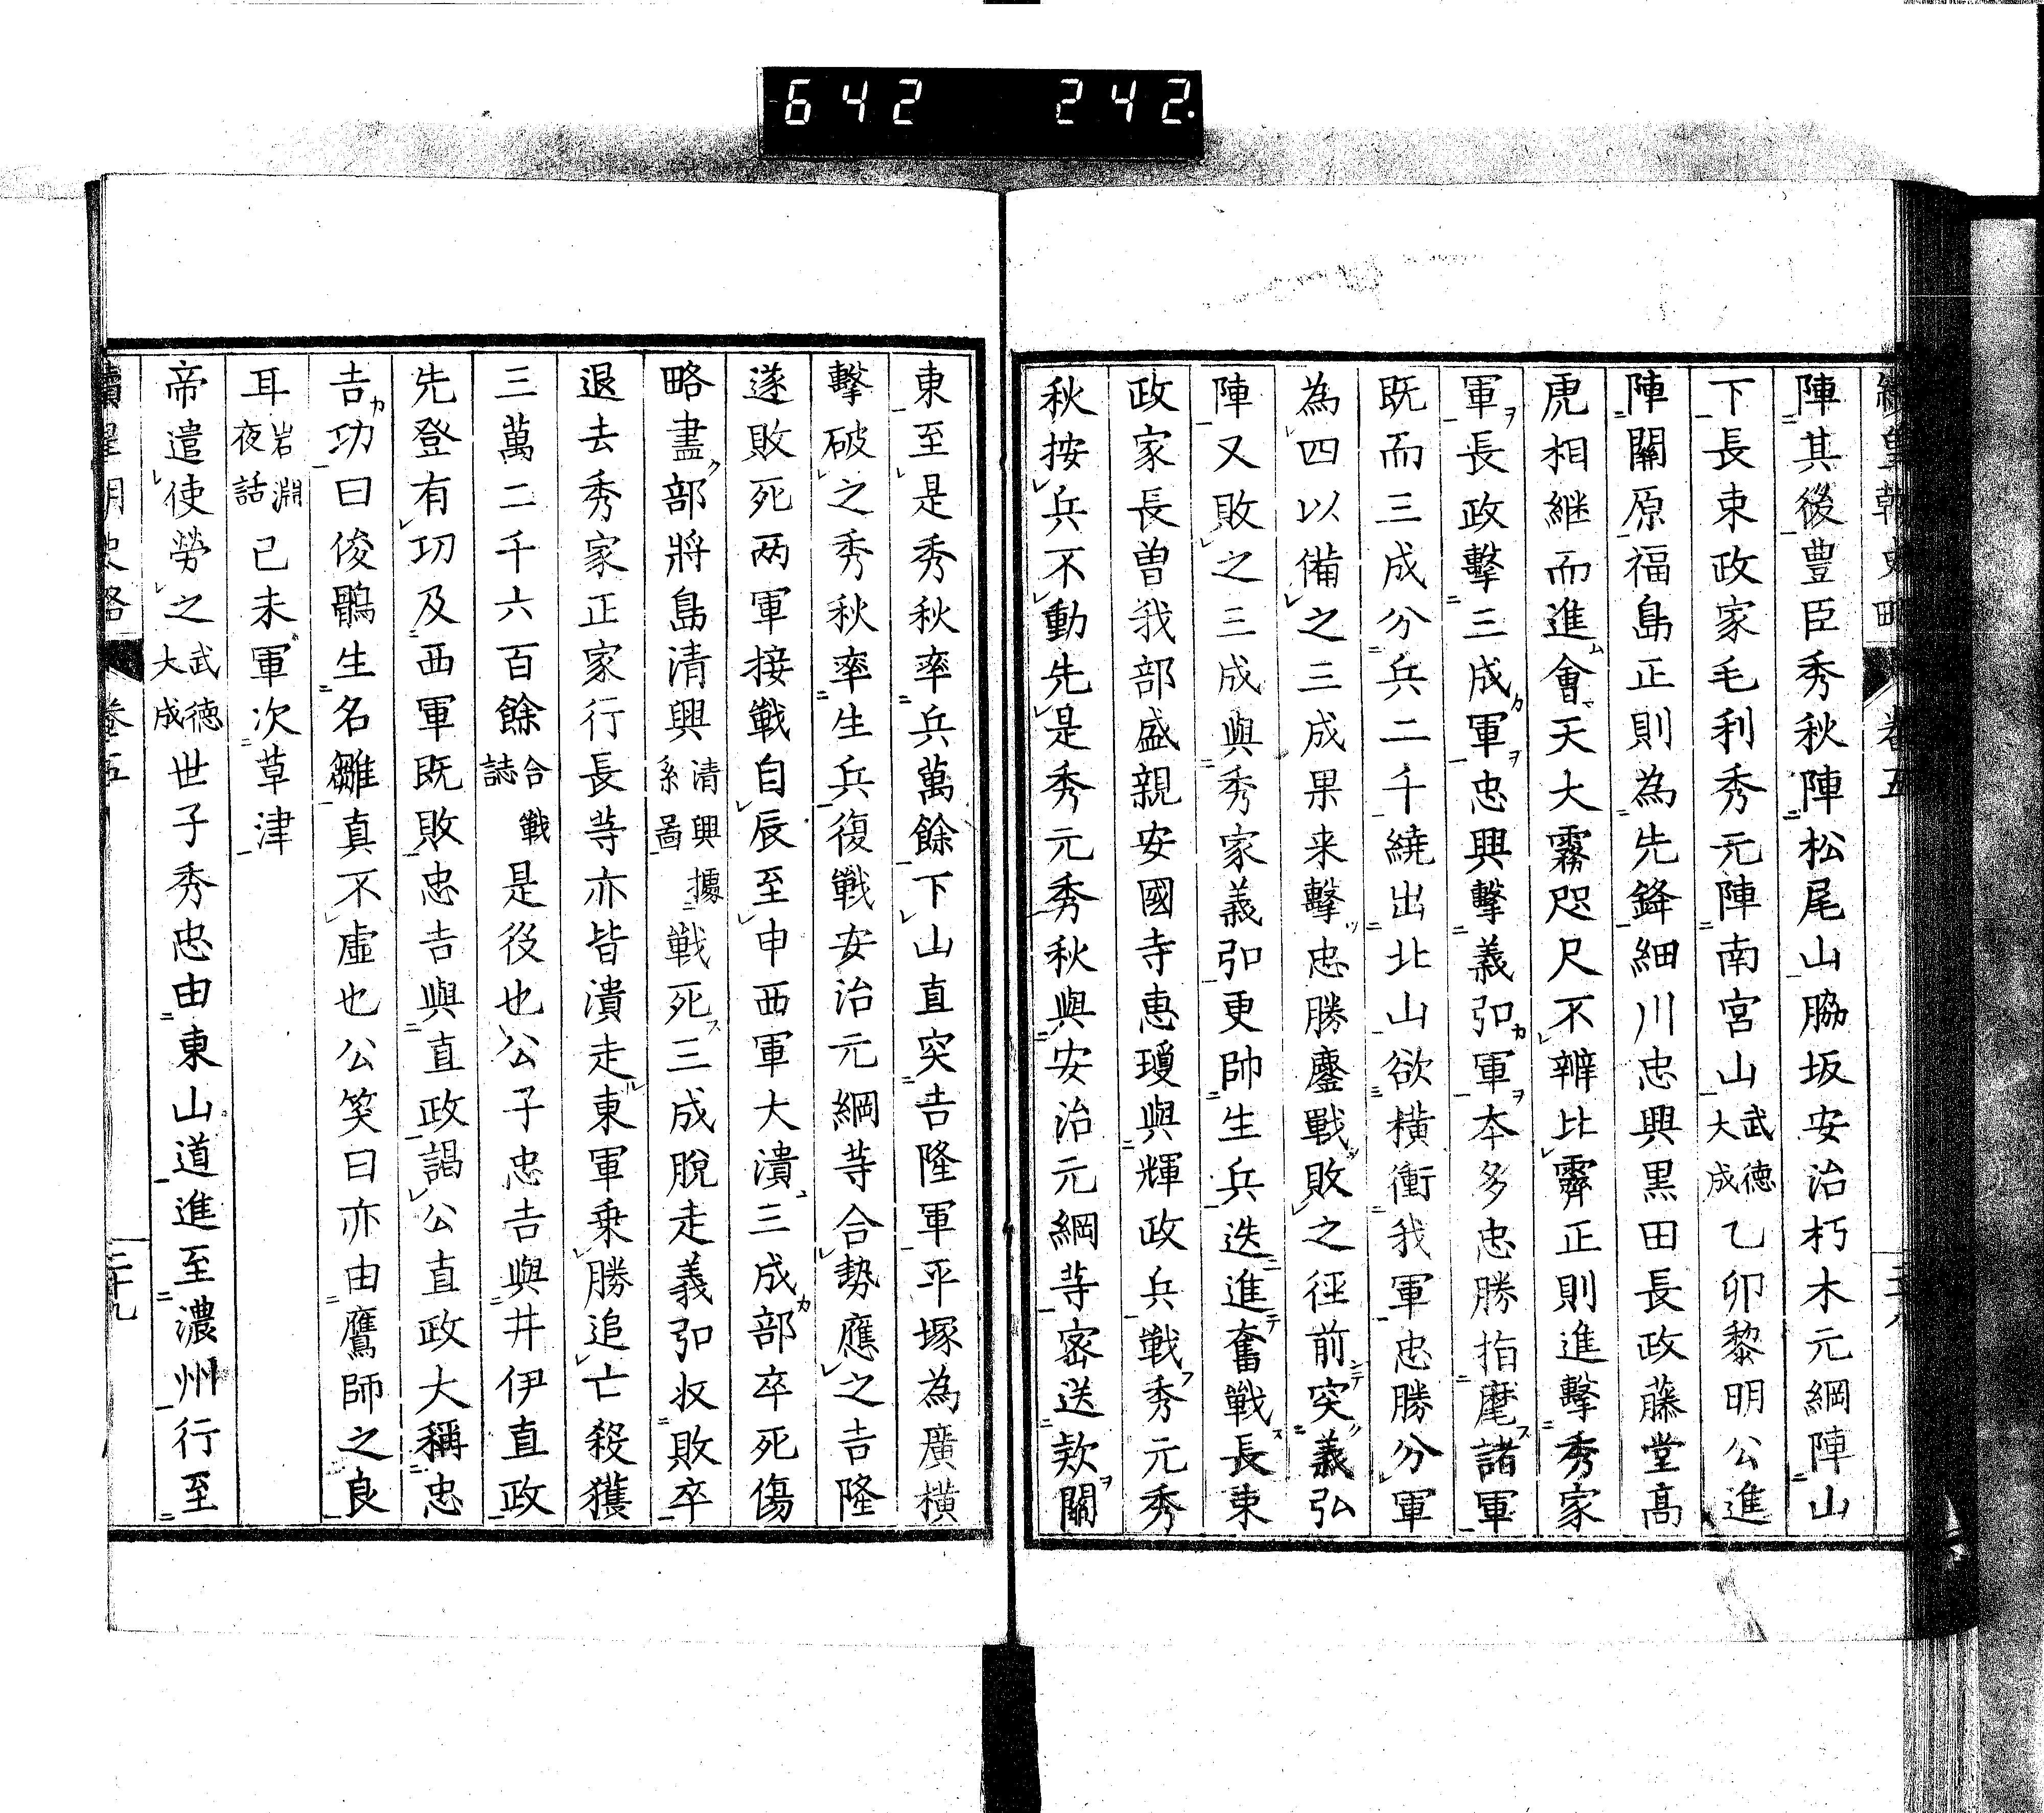 642 242.
陣其後豊臣秀秋陣松尾山脇坂安治朽木元綱陣山
下長束政家毛利秀元陣南宮山武德大成乙卯黎明公進
陣關原福島正則為先鋒細川忠興黒田長政藤堂高
虎相継而進會天大霧咫尺不辨比霽正則進擊秀家
軍ヲ長政擊三成カ軍ヲ忠興擊義弘カ軍ヲ本多忠勝指麾ス諸軍
既而三成分兵二千繞出北山欲橫衝我軍忠勝分軍
為四以備之三成果来擊ツ忠勝鏖戰敗之径前ンテ突ク義弘
陣又敗之三成與秀家義弘更帥生兵迭進テ奮戰ス長束
政家長曽我部盛親安國寺惠瓊與輝政兵戰フ秀元秀
秋按兵不動先是秀元秀秋與安治元綱等密送欵ヲ關
東至是秀秋率兵萬餘下山直突吉隆軍平塚為廣橫
擊破之秀秋率生兵復戰安治元綱等合勢應之吉隆
遂敗死兩軍接戰自辰至申西軍大潰ユ三成カ部卒死傷
略盡ク部將島清興清興系圖據戰死ス三成脫走義弘收敗卒
退去秀家正家行長等亦皆潰走ル東軍乗勝追亡殺獲
三萬二千六百餘合戰誌是役也公子忠吉與井伊直政
先登有功及西軍既敗忠吉與直政謁公直政大稱忠
吉カ功曰俊鶻生名雛真不虛也公笑曰亦由鷹師之良
耳岩淵夜話己未軍次草津
帝遣使勞之武德大成世子秀忠由東山道進至濃州行至
卷五
二十九